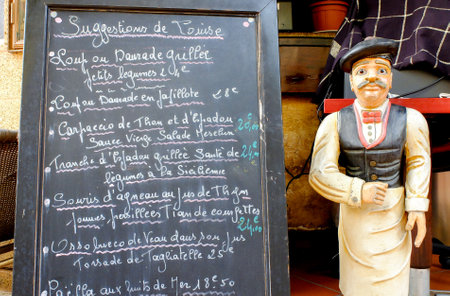 Suggestions de Louise
Loup ou Daurade griller
petits légumes 24€
Loup ou Daurade en papillote 28€
Carpaccio de Thon et d'Espadon 20,00
Sauce Vierge Salade Mesclun
Tranche d'Espadon grillée Sauté de 24,00
légumes à la Sicilienne
Souris d'agneau au jus de Thym
pommes persillées Tian de courgettes
24,00
Osso buco de Veau dans son jus
Torsade de Tagliatelle 25€
Paëlla aux fruits de Mer 18€50